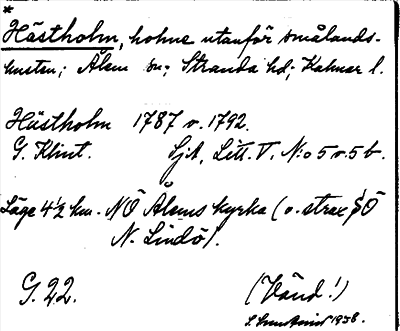 *
Hästholm, holme utanför smålands-
kusten; Ålem sn; Stranda hd; Kalmar l.
Hästholm 1787 o. 1792.
G. Klint. Sjk, Litt. V, No 5 o. 5 b.
Läge 4 1/2 km. NÖ Ålems kyrka (o. strax SÖ
N. Lindö).
G. 22. (Vänd!)
1938.